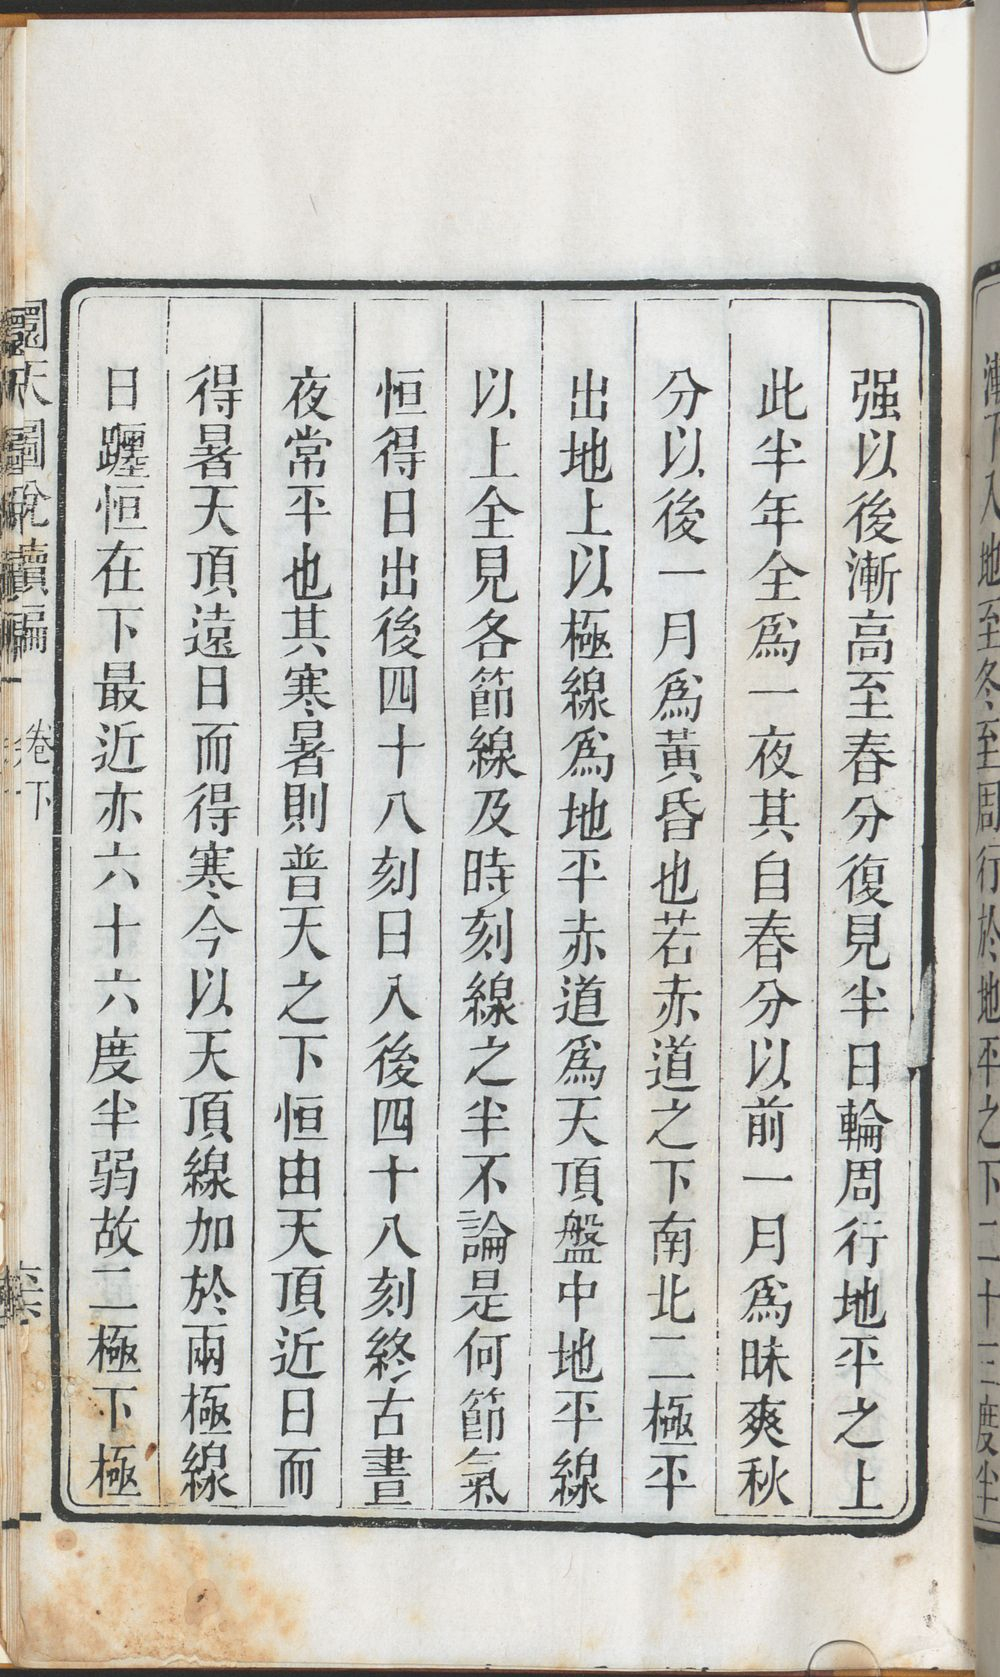 漸下入地至冬至周行於地平之下二十三度半
强以後漸高至春分復見半日輪周行地平之上
此半年全爲一夜其自春分以前一月爲昧爽秋
分以後一月爲黃昏也若赤道之下南北二極平
出地上以極線爲地平赤道爲天頂盤中地平線
以上全見各節線及時刻線之半不論是何節氣
恒得日出後四十八刻日入後四十八刻終古晝
夜常平也其寒暑則普天之下恒由天頂近日而
得暑天頂遠日而得寒今以天頂線加於兩極線
日躔恒在下最近亦六十六度半弱故二極下極
圜天圖說續編
卷下